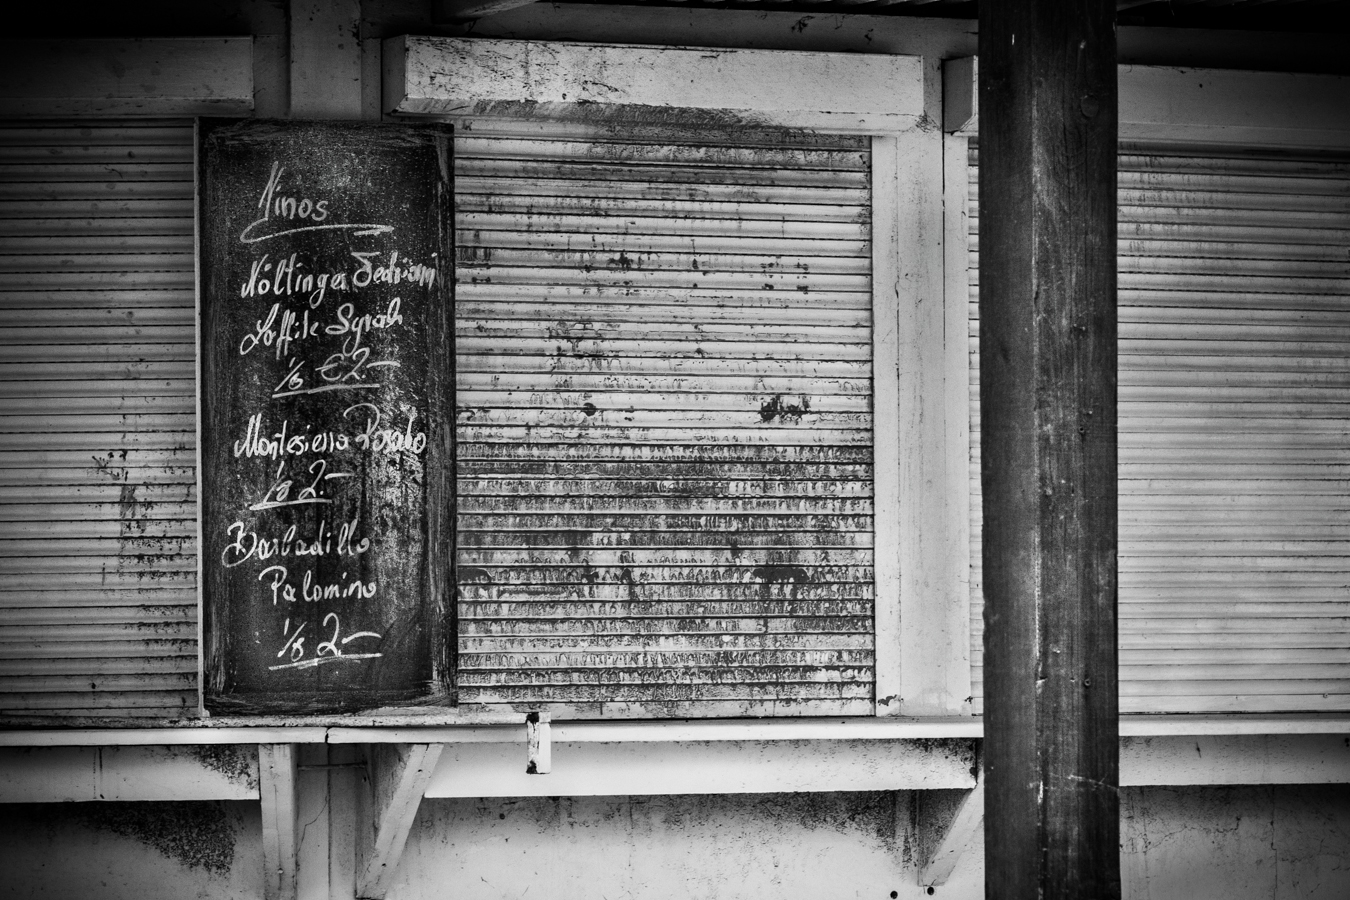 Vinos
Nöltinger
Syrah
1/8 €2.-
Rosado
1/8 2.-
Barbadillo
Palomino
1/8 2.-